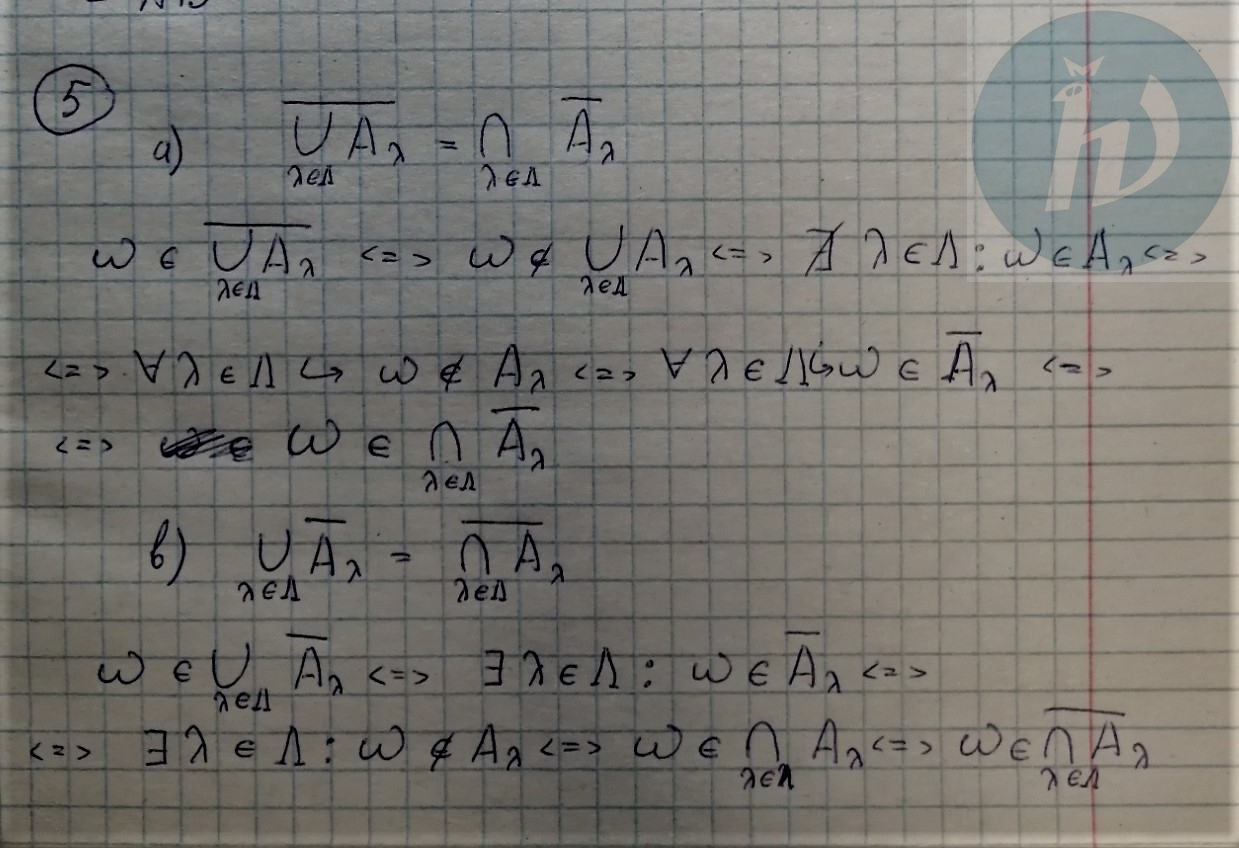 5
а) \overline{\bigcup_{λ∈Λ} A_λ} = \bigcap_{λ∈Λ} \overline{A}_λ
ω ∈ \overline{\bigcup_{λ∈Λ} A_λ} <=> ω ∉ \bigcup_{λ∈Λ} A_λ <=> ∄ λ ∈ Λ : ω ∈ A_λ <=>
<=> ∀ λ ∈ Λ ↪ ω ∉ A_λ <=> ∀ λ ∈ Λ ↪ ω ∈ \overline{A}_λ <=>
<=> ω ∈ \bigcap_{λ∈Λ} \overline{A}_λ
в) \bigcup_{λ∈Λ} \overline{A}_λ = \overline{\bigcap_{λ∈Λ} A_λ}
ω ∈ \bigcup_{λ∈Λ} \overline{A}_λ <=> ∃ λ ∈ Λ : ω ∈ \overline{A}_λ <=>
<=> ∃ λ ∈ Λ : ω ∉ A_λ <=> ω ∈ \bigcap_{λ∈Λ} A_λ <=> ω ∈ \overline{\bigcap_{λ∈Λ} A_λ}